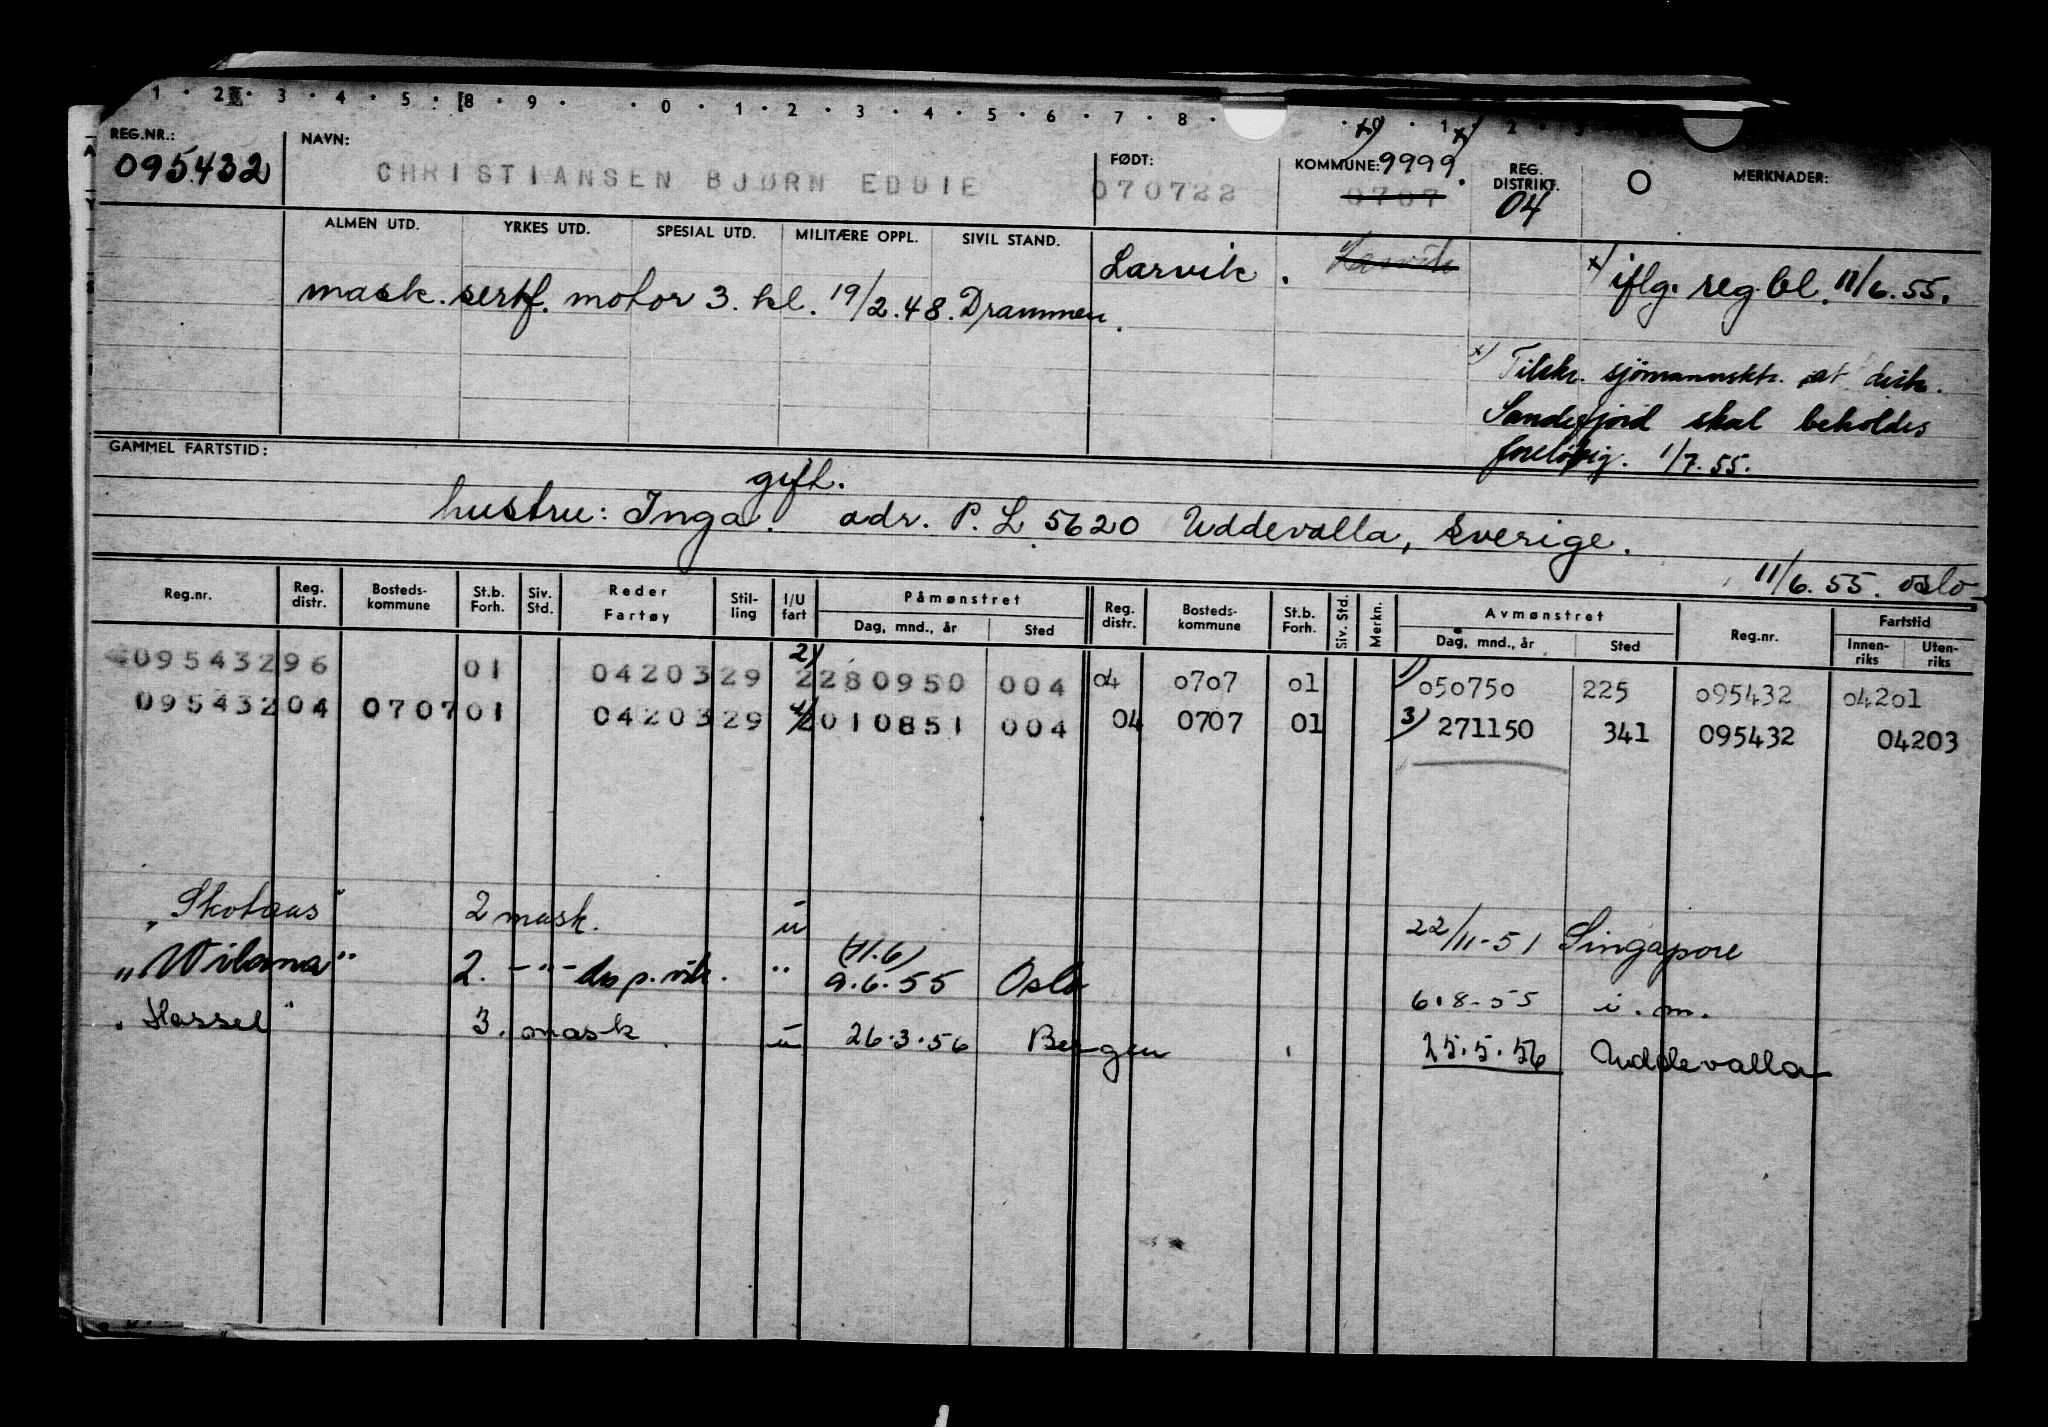 1 · 2 · 3 · 4 · 5 · 8 · 9 · · 0 · 1 · 2 · 3 · 4 · 5 · 6 · 7 · 8 · x) 1 x) 2 · 3
REG.NR.: NAVN: FØDT: KOMMUNE: 9999. REG. DISTRIKT. O MERKNADER:
095432 CHRISTIANSEN BJØRN EDDIE 070722 0707 04
ALMEN UTD. YRKES UTD. SPESIAL UTD. MILITÆRE OPPL. SIVIL STAND. Larvik . Larvik x) iflg. reg.bl. 11/6.55.
mask. sertf. motor 3. kl. 19/2.48. Drammen.
x) Tilskr. sjömannsktr. at distr.
Sandefjord skal beholdes
foreløbig. 1/7.55.
GAMMEL FARTSTID:
gift.
hustru: Inga. adr. P. L 5620 Uddevalla, Sverige.
11/6.55. Oslo
Reg.nr. Reg. distr. Bosteds- kommune St.b. Forh. Siv. Std. Reder Fartøy Stil- ling I/U fart Påmønstret Dag, mnd., år Sted Reg. distr. Bosteds- kommune St.b. Forh. Siv. Std. Merkn. Avmønstret Dag, mnd., år Sted Reg.nr. Fartstid Innen- riks Uten- riks
095432 96 01 04203 29 2) 2 280950 004 04 0707 01 1) 050750 225 095432 04201
095432 04 0707 01 04203 29 4) 2 010851 004 04 0707 01 3) 271150 341 095432 04203
"Skotaas" 2 mask. u 22/11-51 Singapore
"Wilama" 2. -"- disp. vik. " (11.6) 9.6.55 Oslo 6.8-55 i. m.
"Hassel" 3. mask. u 26.3.56 Bergen 25.5.56 Uddevalla